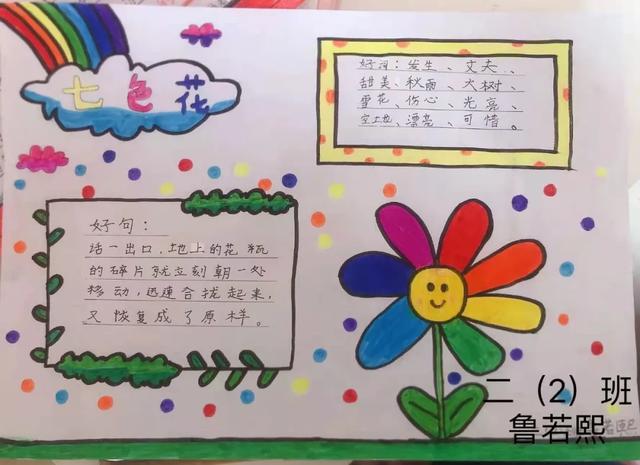 七色花
好词：发生、丈夫、
甜美、秋雨、大树、
雪花、伤心、光亮、
空地、漂亮、可惜。
好句：
话一出口，地上的花瓶
的碎片就立刻朝一处
移动，迅速合拢起来，
又恢复成了原样。
二（2）班
鲁若熙